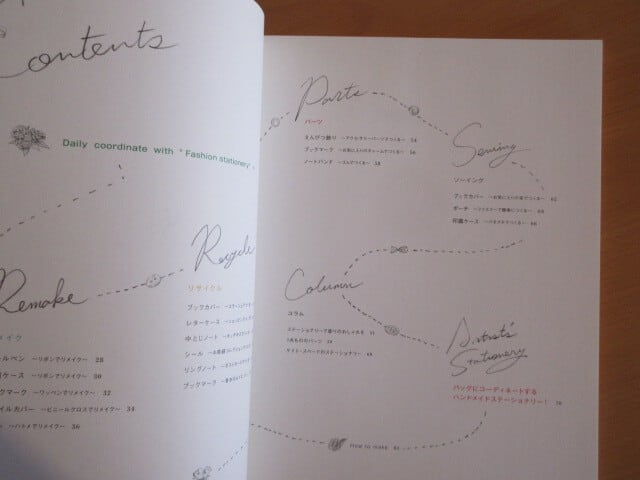 Contents
Daily coordinate with "Fashion stationery"
Remake
メイク
ールペン ~リボンでリメイク~ 28
ケース ~リボンでリメイク~ 30
クマーク ~ワッペンでリメイク~ 32
イルカバー ~ビニールクロスでリメイク~ 34
~ハトメでリメイク~ 36
Recycle
リサイクル
ブックカバー
レターケース
中とじノート
シール
リングノート
ブックマーク
Parts
パーツ
えんぴつ飾り ~アクセサリーパーツでつくる~ 54
ブックマーク ~お気に入りのチャームでつくる~ 56
ノートバンド ~ゴムでつくる~ 58
Sewing
ソーイング
ブックカバー ~お気に入りの布でつくる~ 62
ポーチ ~ファスナーで簡単につくる~ 64
印鑑ケース ~ハネメタでつくる~ 66
Column
コラム
ステーショナリーで香りのおしゃれを
ケイト・スペードのステーショナリー 68
Artist's
Stationery
バッグにコーディネートする
ハンドメイドステーショナリー! 70
How to make 81